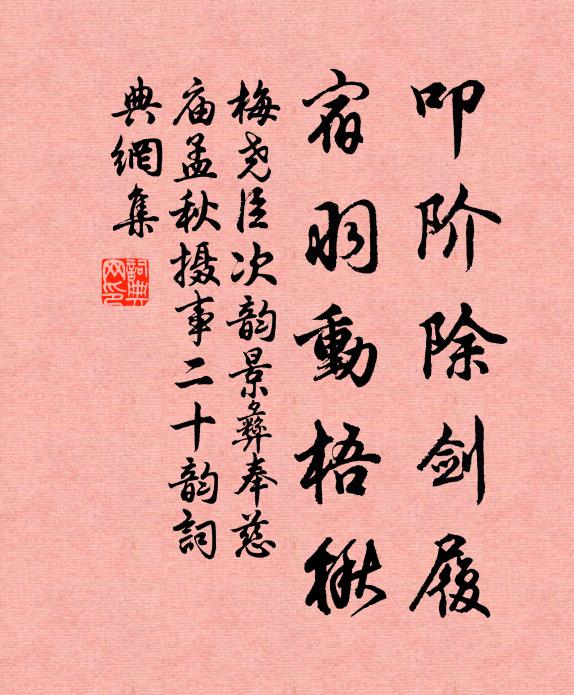 叩阶除剑履
宿羽動梧楸
梅尧臣次韵景彝奉慈
庙孟秋摄事二十韵詞
典網集
詞典网印